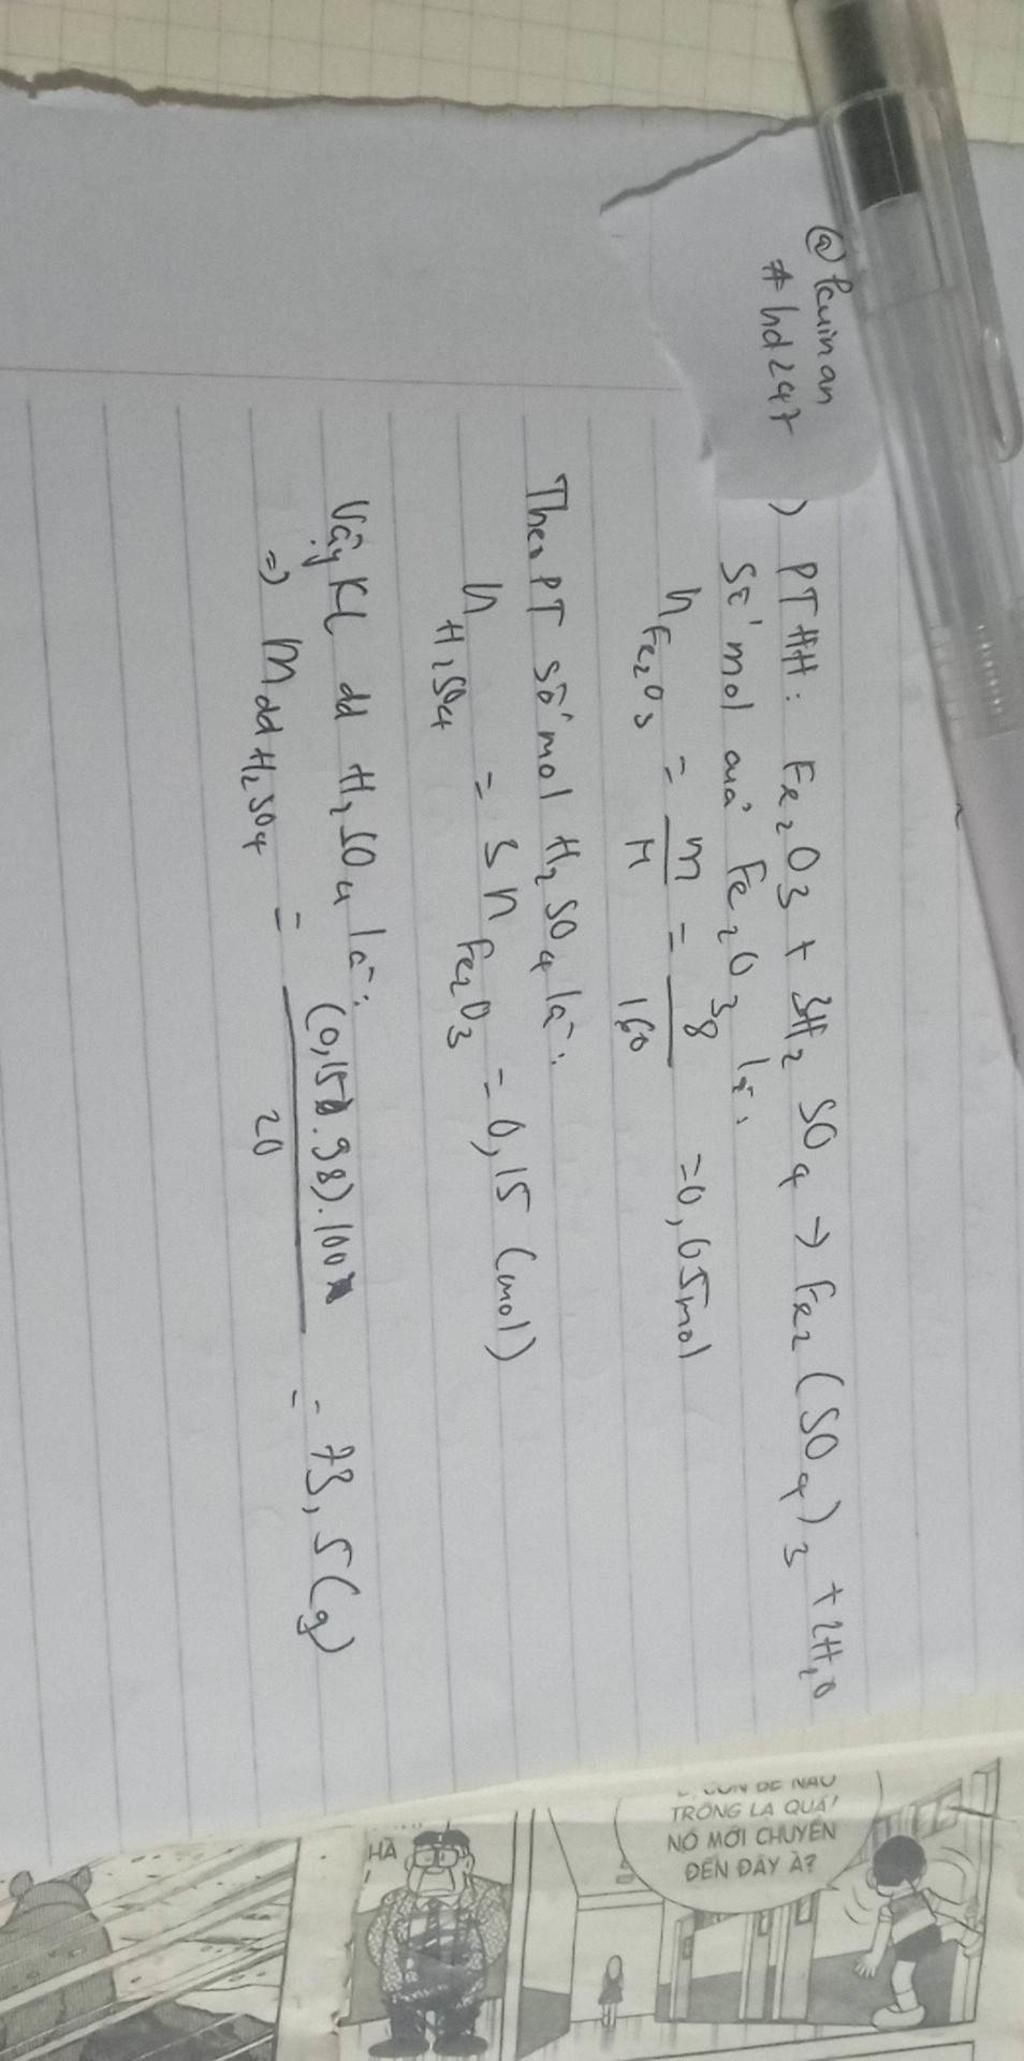 @kminan
#hd247
) PTHH: Fe₂O₃ + 3H₂SO₄ → Fe₂(SO₄)₃ + 2H₂O
Số mol của Fe₂O₃ là:
nFe₂O₃ = m/M = 8/160 = 0,05mol
Theo PT số mol H₂SO₄ là:
nH₂SO₄ = 3nFe₂O₃ = 0,15 (mol)
Vậy KL dd H₂SO₄ là:
=> mdd H₂SO₄ = (0,15.98).100/20 = 73,5(g)
CON DE NÀO
TRÔNG LẠ QUÁ!
NÓ MỚI CHUYỂN
ĐẾN ĐÂY À?
HÀ